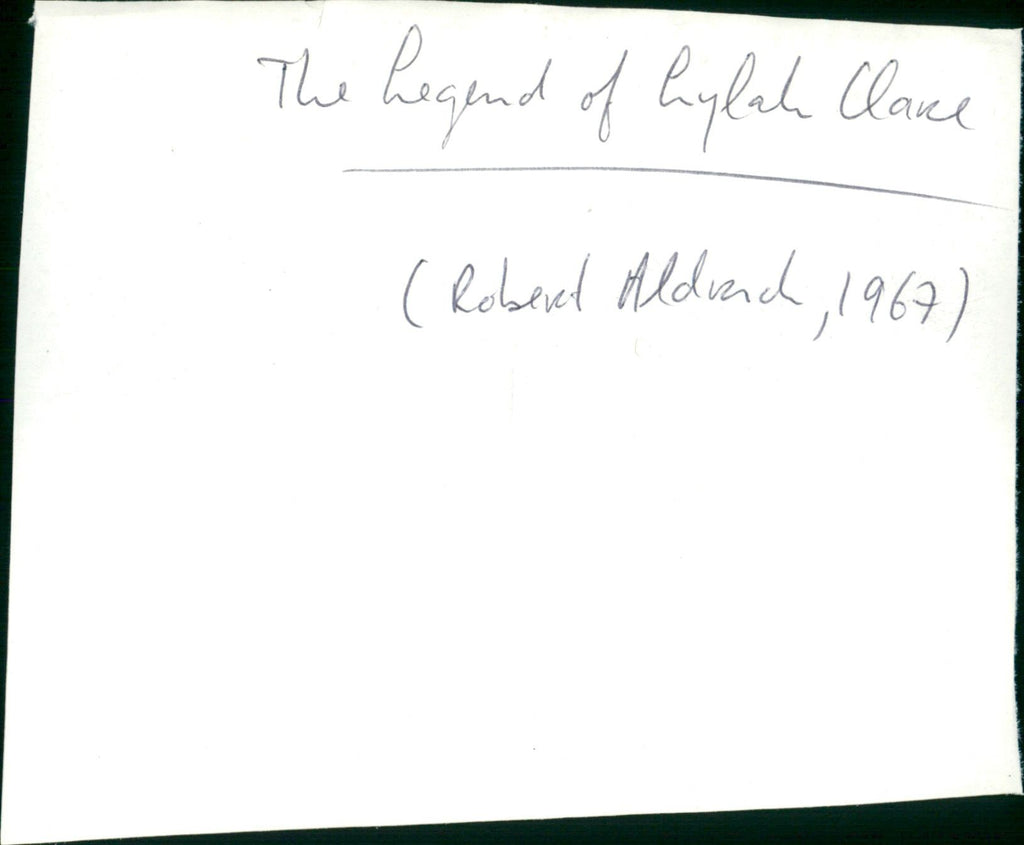 The Legend of Lylah Clare
(Robert Aldrich, 1967)